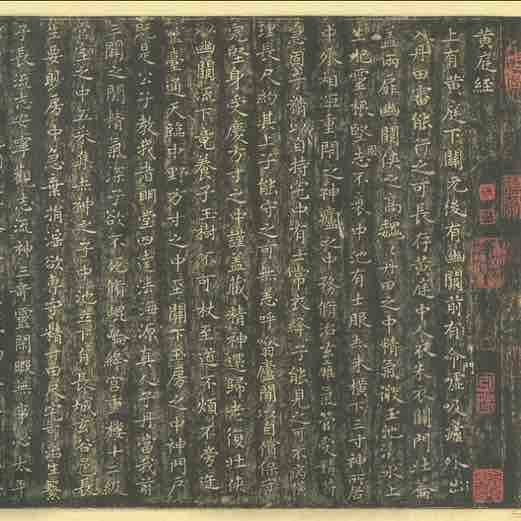 黄庭經
上有黄庭下關元後有幽闕前有命門噓吸廬外出
入丹田審能行之可長存黄庭中人衣朱衣關門壯籥
蓋兩扉幽闕俠之高巍丹田之中精氣微玉池清水上
生肥靈根堅志不衰中池有士服赤朱橫下三寸神所居
中外相距重閉之神廬之中務脩治玄癰氣管受精符
急固子精以自持宅中有士常衣絳子能見之可不病橫
理長尺約其上子能守之可無恙呼噏廬間以自償保守
完堅身受慶方寸之中謹蓋藏精神還歸老復壯俠
以幽闕流下竟養子玉樹令可杖至道不煩不旁迕
靈臺通天臨中野方寸之中至關下玉房之中神門戶
既是公子教我者明堂四達法海源真人子丹當我前
三關之間精氣深子欲不死脩崐崙絳宮重樓十二級
宮室之中五采集赤神之子中池立下有長城玄谷邑長
生要眇房中急棄捐淫欲專守精寸田尺宅可治生繫
子長流志安寧觀志流神三奇靈閑暇無事心太平